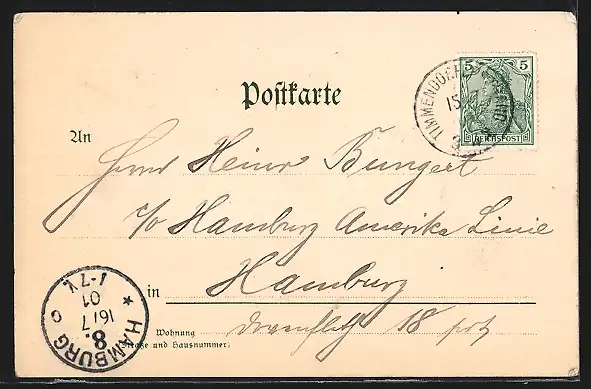 5 5
REICHSPOST
TIMMENDORFER STRAND
15
Postkarte
An
Herrn Heinr Bungert
c/o Hamburg Amerika Linie
in Hamburg
Wohnung
(Straße und Hausnummer)
18
HAMBURG
8
16/7
01
1-7 V.